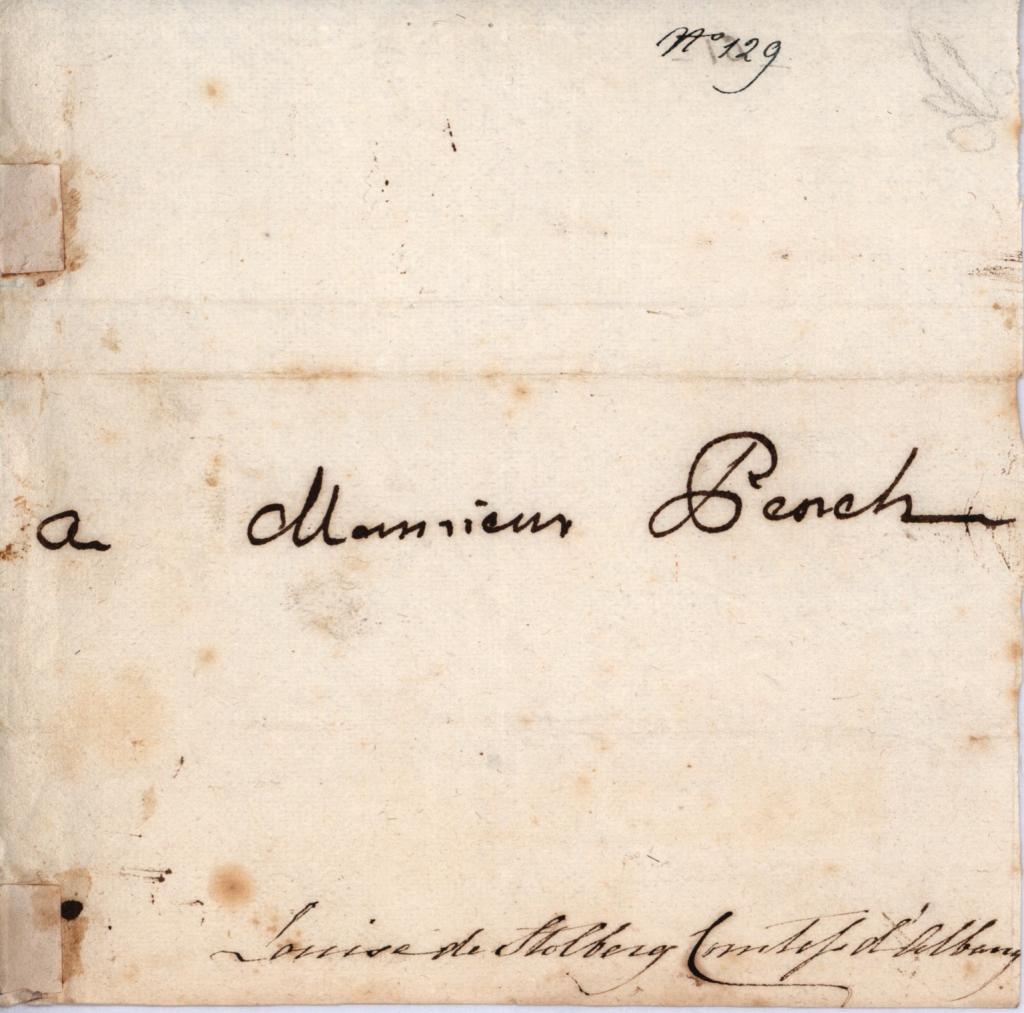 No 129
a Monsieur
Louise de Stolberg Comtesse d'Albany